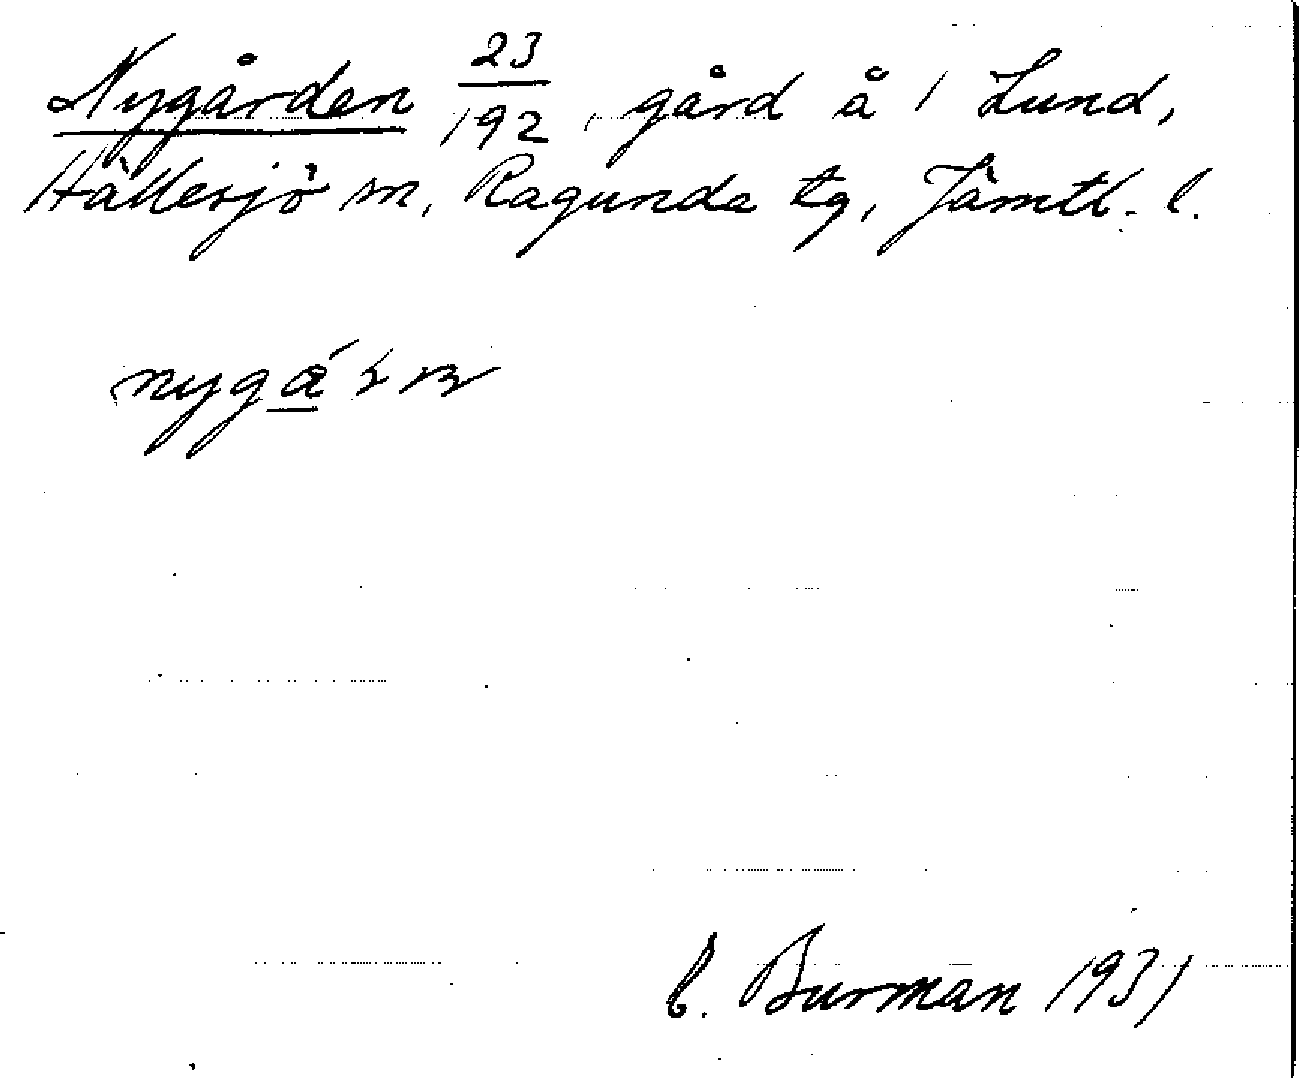 Nygården 23/192, gård å 1 Lund,
Hällesjö sn, Ragunda tg, Jämtl. l.
C. Burman 1931